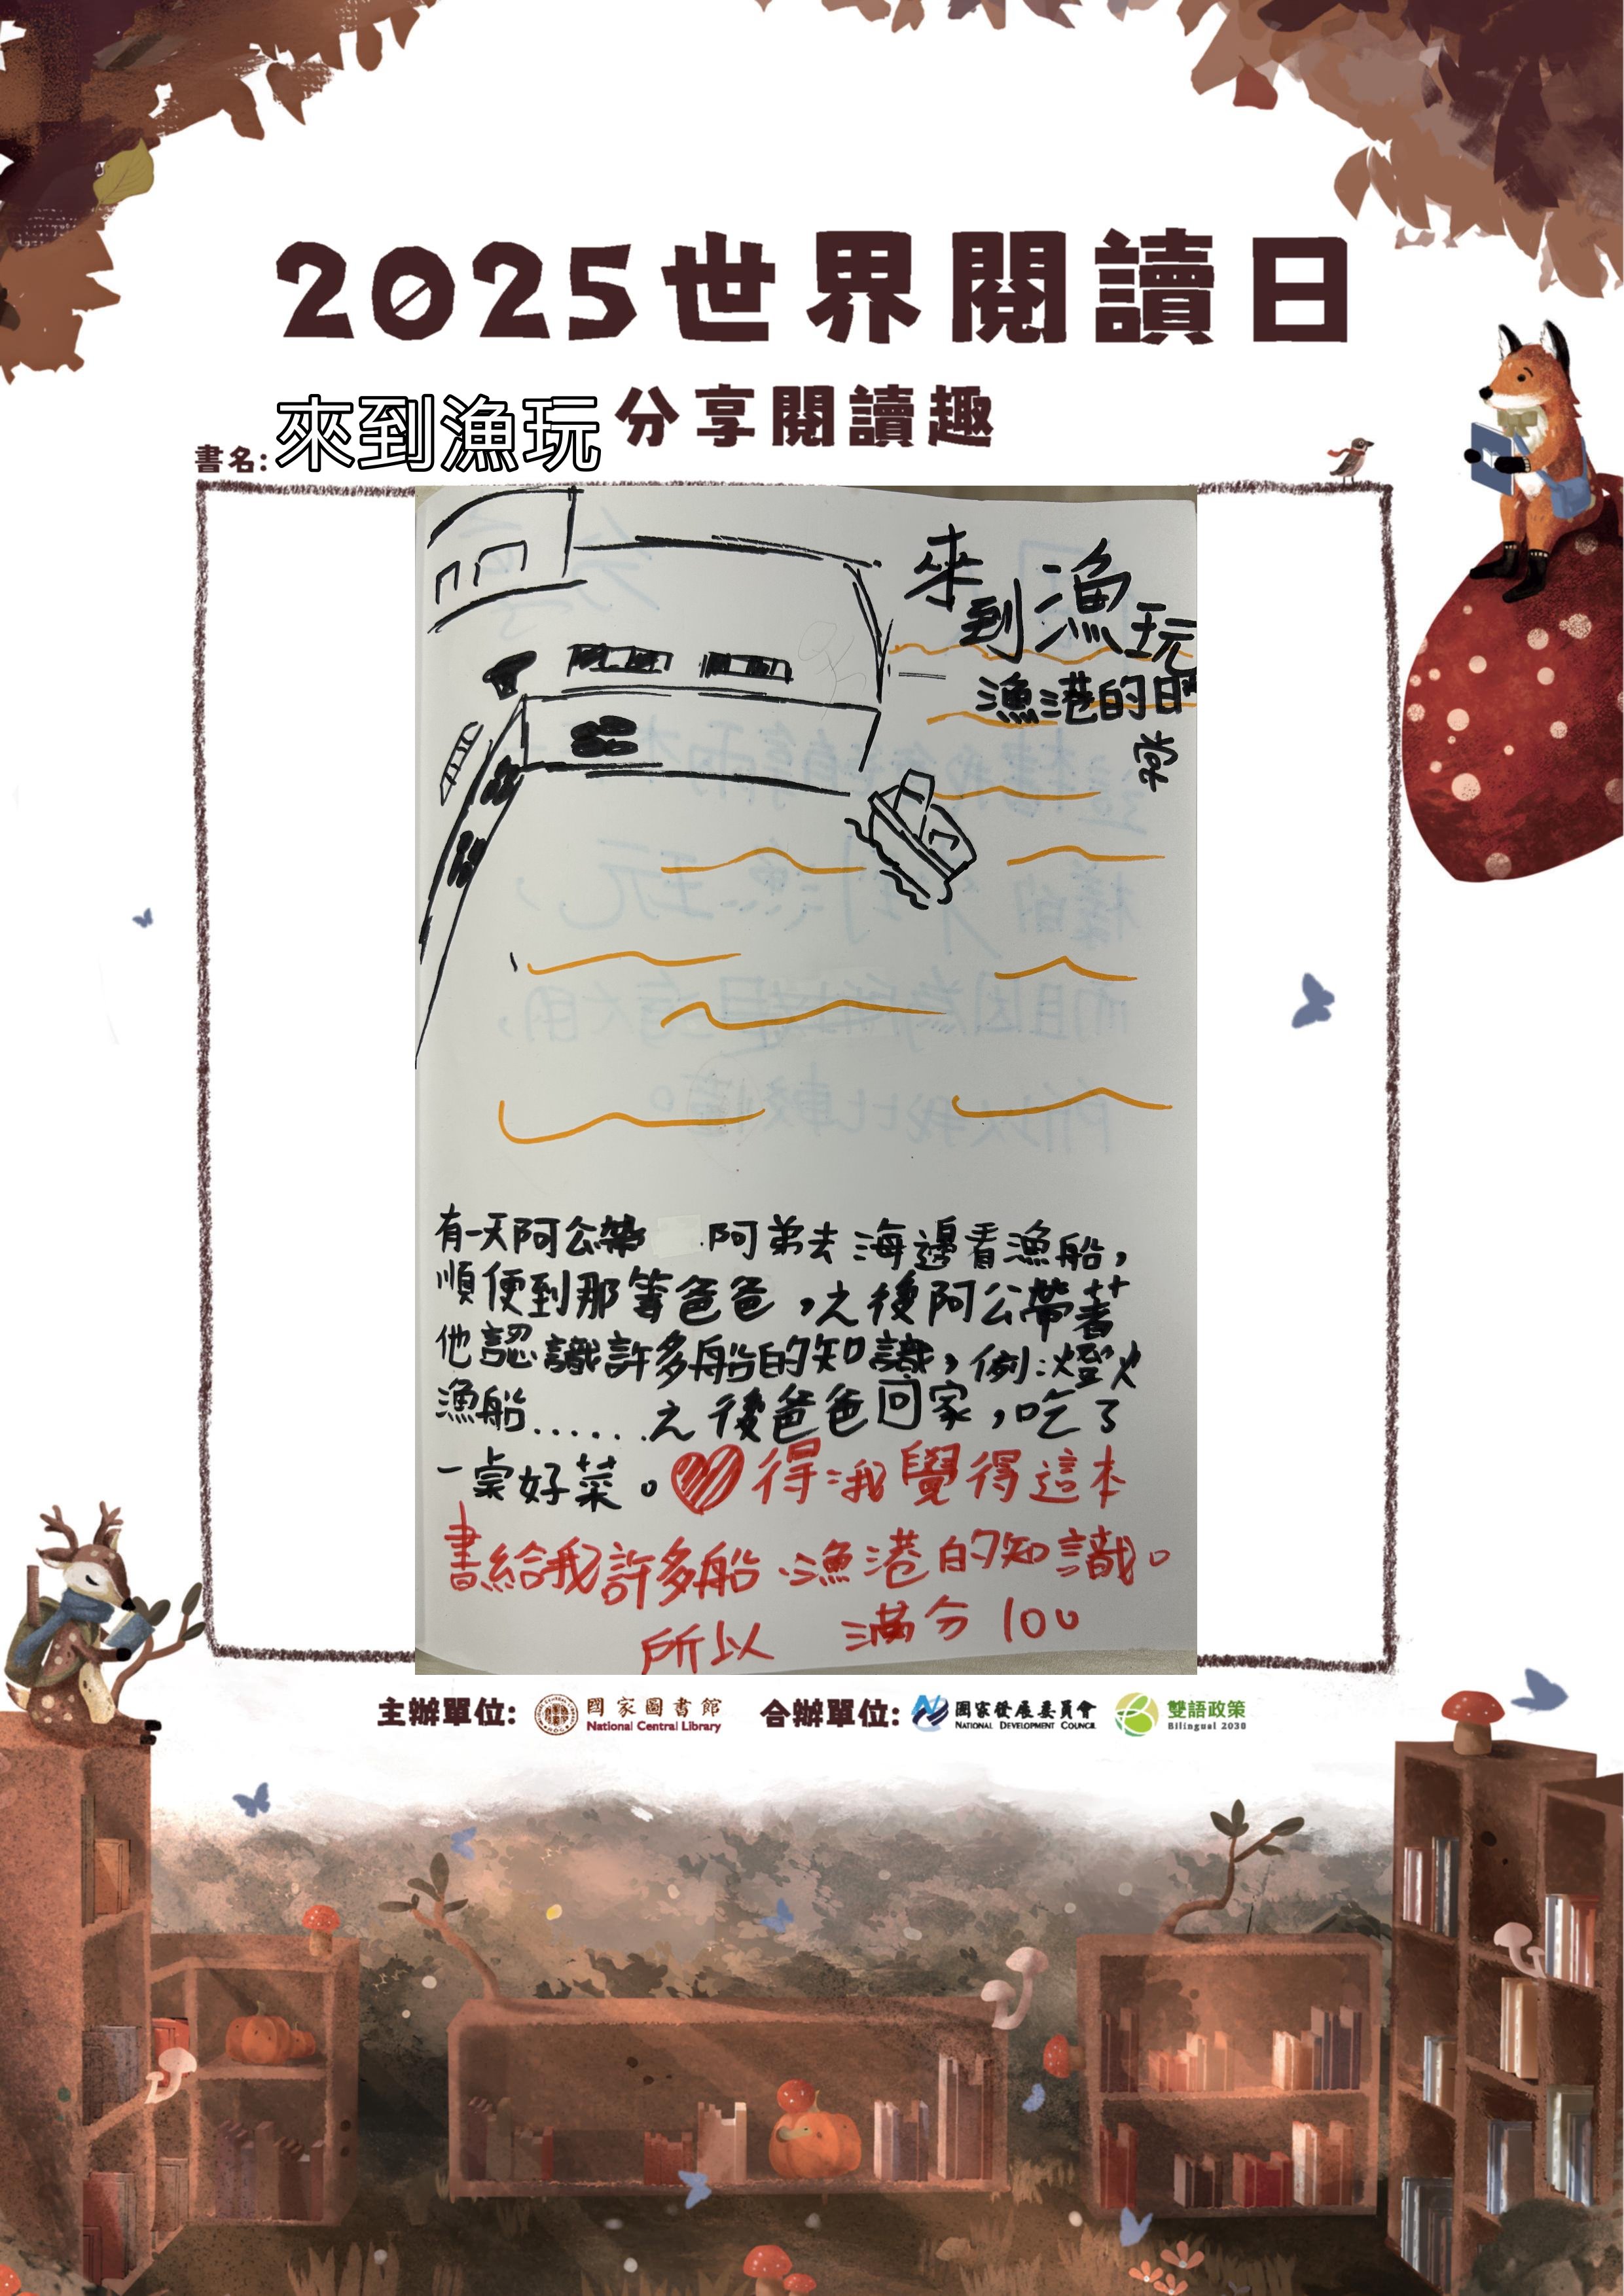 2025世界閱讀日
分享閱讀趣
書名:來到漁玩
來到漁玩
漁港的日
常
有一天阿公帶 阿弟去海邊看漁船,
順便到那等爸爸,之後阿公帶著
他認識許多船的知識,例:燈火
漁船......之後爸爸回家,吃了
一桌好菜。得:我覺得這本
書給我許多船、漁港的知識。
所以 滿分100
主辦單位: 國家圖書館 National Central Library 合辦單位: 國家發展委員會 NATIONAL DEVELOPMENT COUNCIL 雙語政策 Bilingual 2030